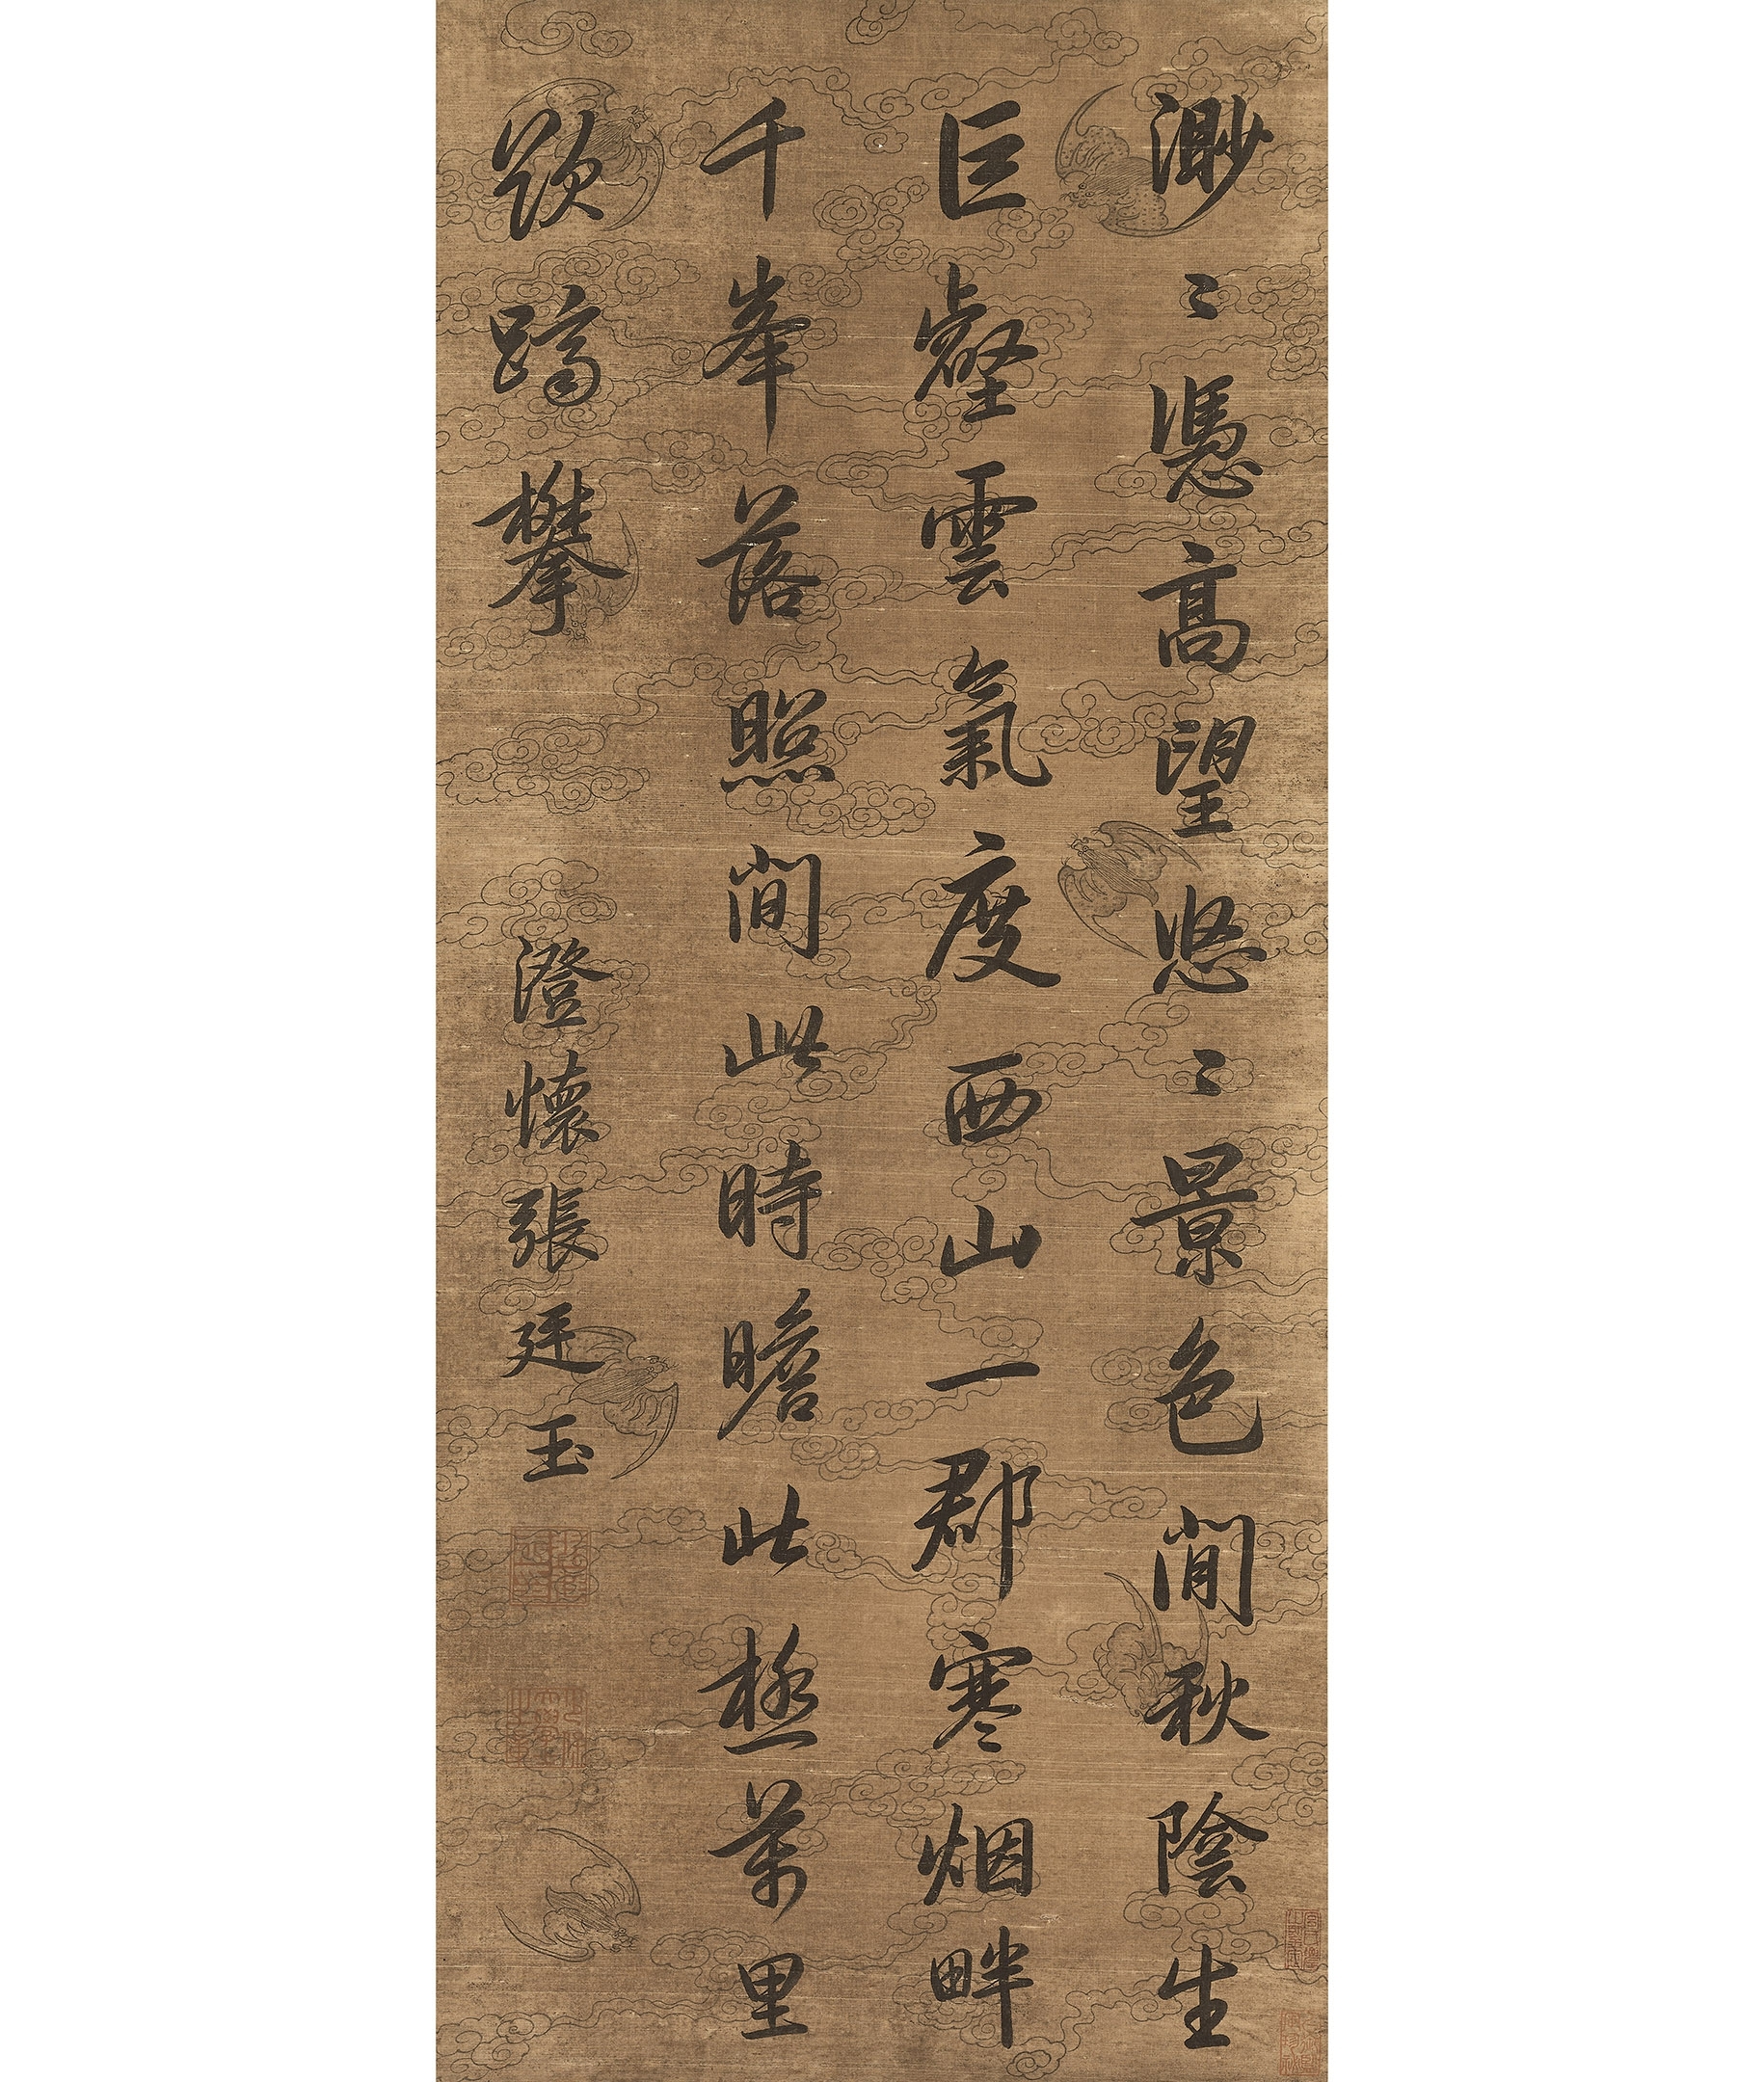 渺〻憑高望悠〻景色間秋陰生
巨壑雲氣度西山一郡寒烟畔
千峯落照間此時瞻北極萬里
欲躋攀
澄懷張廷玉